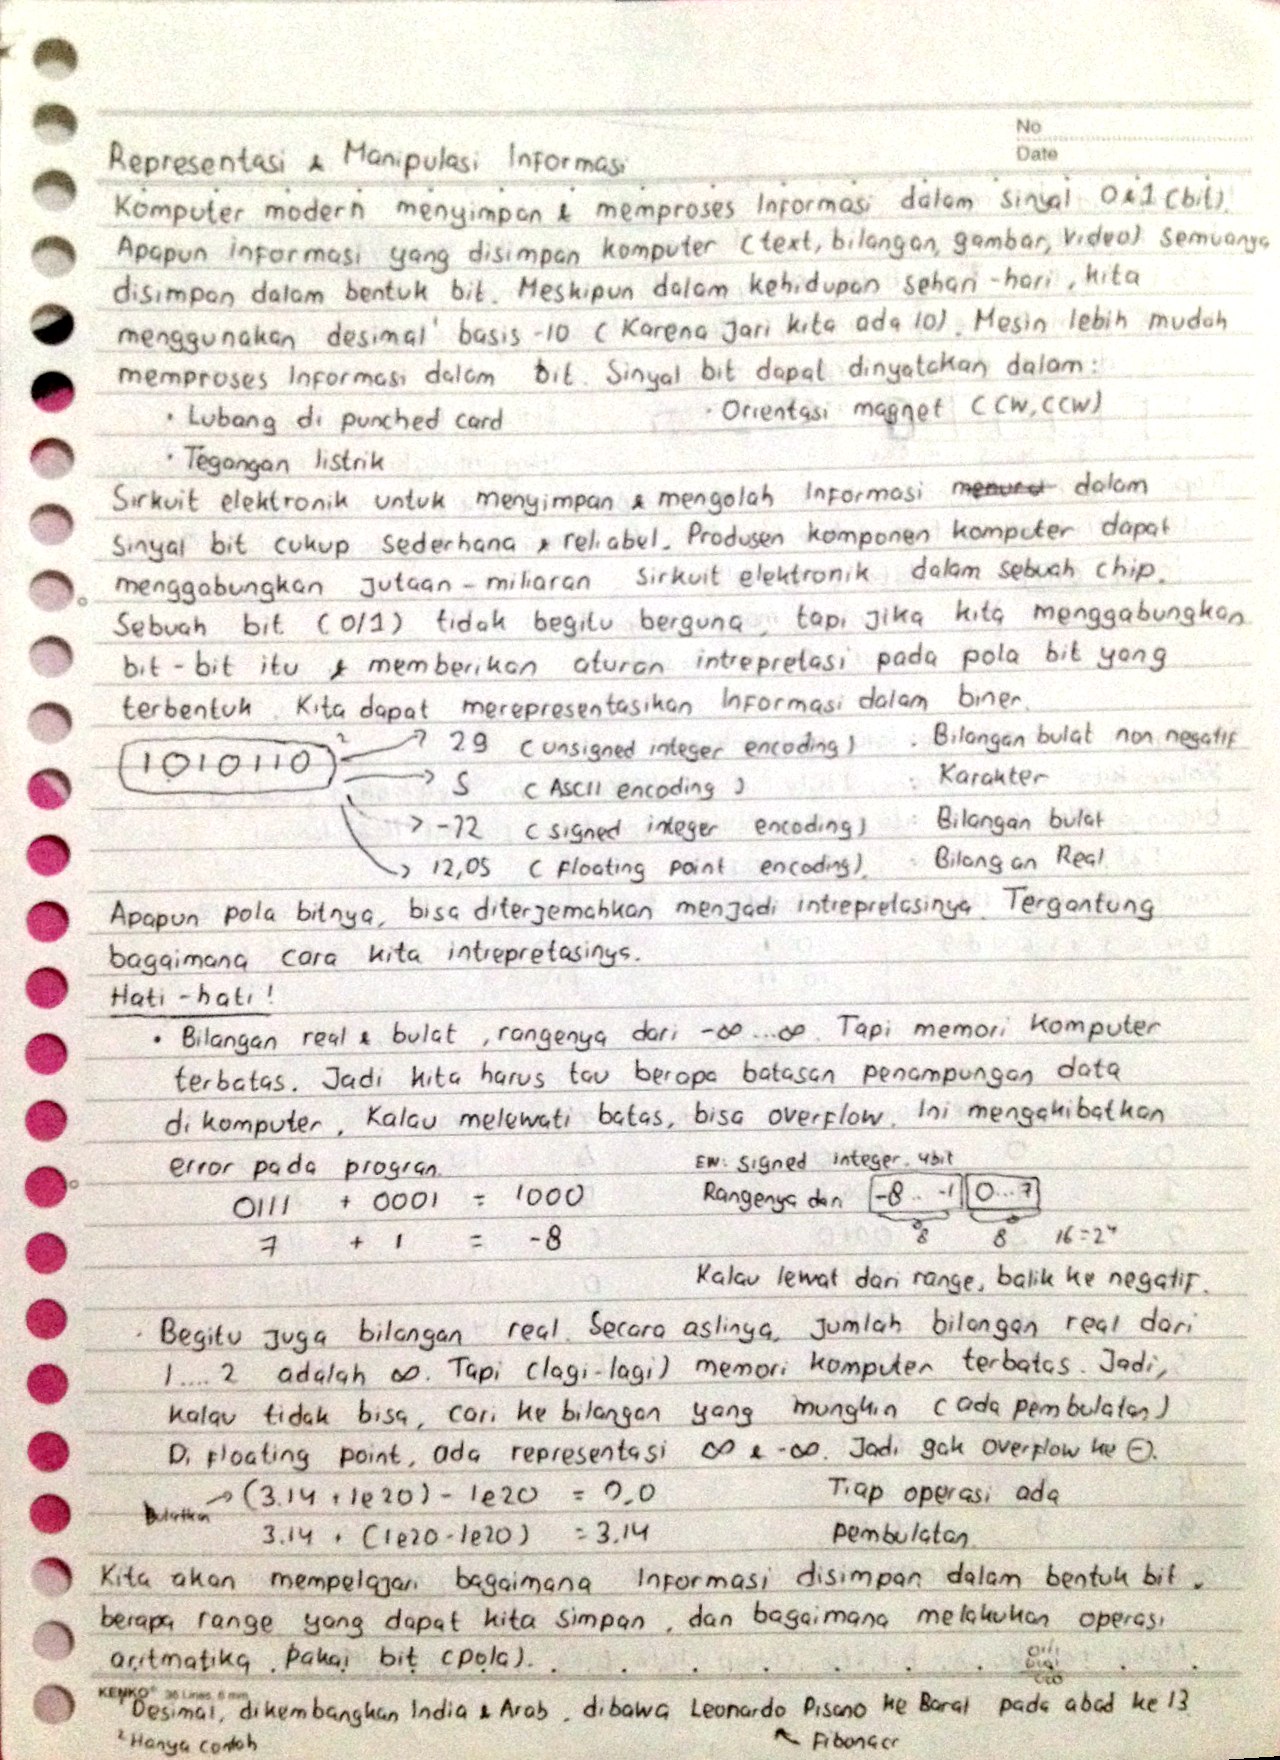 No
Date
Representasi & Manipulasi Informasi
Komputer modern menyimpan & memproses Informasi dalam sinyal 0&1 (bit).
Apapun informasi yang disimpan komputer (text, bilangan, gambar, video) semuanya
disimpan dalam bentuk bit. Meskipun dalam kehidupan sehari-hari, kita
menggunakan desimal¹ basis-10 (Karena Jari kita ada 10). Mesin lebih mudah
memproses Informasi dalam bit. Sinyal bit dapat dinyatakan dalam:
· Lubang di punched card · Orientasi magnet (CW, CCW)
· Tegangan listrik
Sirkuit elektronik untuk menyimpan & mengolah Informasi dalam
sinyal bit cukup sederhana & reliabel. Produsen komponen komputer dapat
menggabungkan Jutaan-miliaran sirkuit elektronik dalam sebuah chip.
Sebuah bit (0/1) tidak begitu berguna, tapi jika kita menggabungkan
bit-bit itu & memberikan aturan intrepretasi pada pola bit yang
terbentuk. Kita dapat merepresentasikan Informasi dalam biner.
1010110 ² → 29 (unsigned integer encoding) : Bilangan bulat non negatif
→ S (ASCII encoding) : Karakter
→ -72 (signed integer encoding) : Bilangan bulat
→ 12,05 (Floating point encoding). : Bilangan Real
Apapun pola bitnya, bisa diterjemahkan menjadi intrepretasinya. Tergantung
bagaimana cara kita intrepretasinya.
Hati-hati!
· Bilangan real & bulat, rangenya dari -∞...∞. Tapi memori komputer
terbatas. Jadi kita harus tau berapa batasan penampungan data
di komputer. Kalau melewati batas, bisa overflow. Ini mengakibatkan
error pada program.
0111 + 0001 = 1000
7 + 1 = -8
signed integer 4bit
Rangenya dari -8 .. -1 0...7
8 8 16=2⁴
Kalau lewat dari range, balik ke negatif.
· Begitu Juga bilangan real. Secara aslinya, Jumlah bilangan real dari
1....2 adalah ∞. Tapi (lagi-lagi) memori komputer terbatas. Jadi,
kalau tidak bisa, cari ke bilangan yang mungkin (ada pembulatan)
Di floating point, ada representasi ∞ & -∞. Jadi gak overflow ke ⊖.
Bulatkan → (3.14 + 1e20) - 1e20 = 0,0 Tiap operasi ada
3.14 + (1e20-1e20) = 3.14 pembulatan
Kita akan mempelajari bagaimana Informasi disimpan dalam bentuk bit,
berapa range yang dapat kita simpan, dan bagaimana melakukan operasi
aritmatika pakai bit (pola).
KENKO® 36 Lines, 6 mm
¹ Desimal, dikembangkan India & Arab, dibawa Leonardo Pisano ke Barat pada abad ke 13
² Hanya contoh ↖ Fibonacci